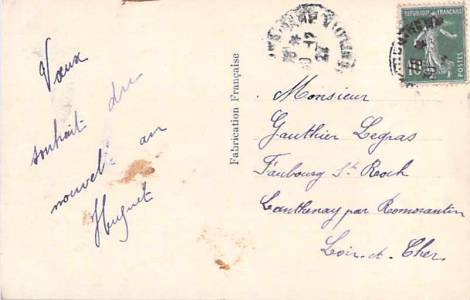 Vœux
souhait du
nouvel an
Huguet
Fabrication Française
REPUBLIQUE FRANÇAISE
10
Monsieur
Gauthier Legras
Faubourg St Roch
Lanthenay par Romorantin
Loir-et-Cher